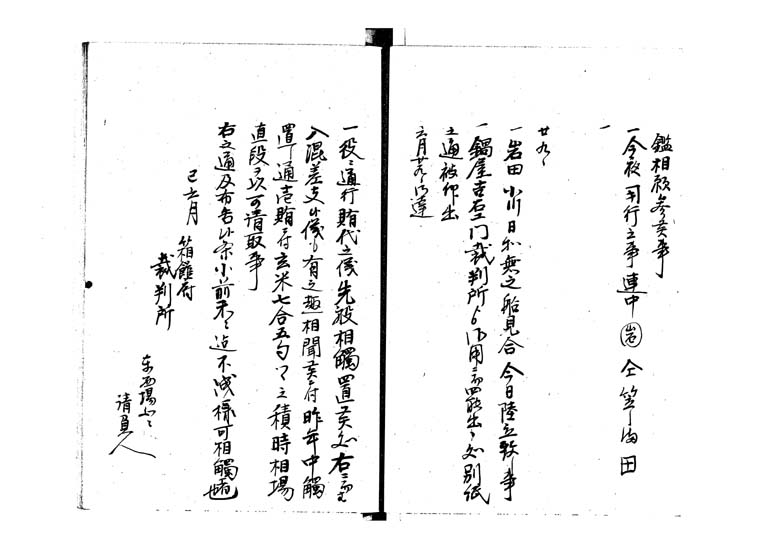 鑑相願参候事
一今夜 同行之事 連中 岩 仝 笠 田
一
廿九日
一岩田 小川 日和無之船見合 今日陸立致事
一鍋屋吉右エ門 裁判所ゟ御用ニ而罷出候処別紙
之通被仰出
六月廿九日御達
一役々通行賄代之儀先般相觸置候処右ニ而
入混差支候儀も有之趣相聞候ニ付昨年中觸
置候通壱賄ニ付玄米七合五勺ツヽ之積時相場
直段ヲ以可請取事
右之通及布告候条小前末々迄不洩様可相觸者也
巳六月 箱館府
裁判所
東西場所
請負人